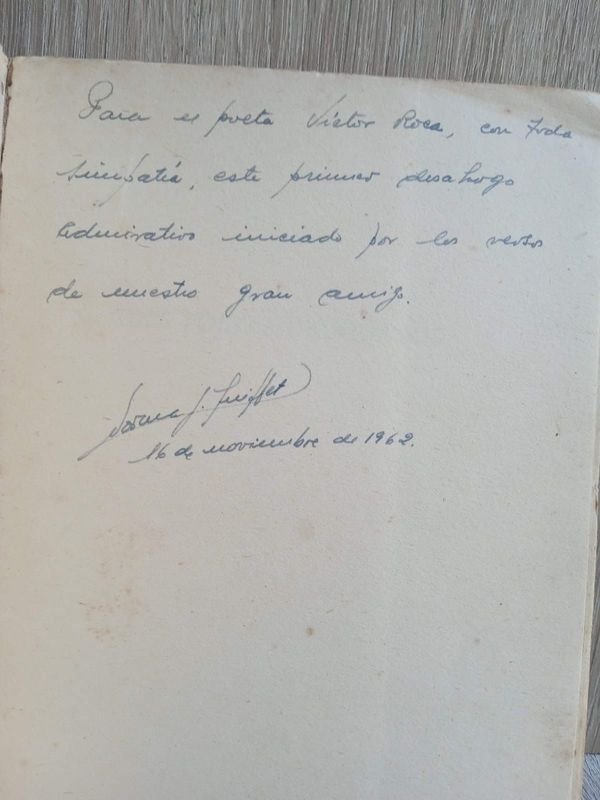 Para el poeta Victor Roca, con toda
simpatía, este primer desahogo
admirativo iniciado por los versos
de nuestro gran amigo.
Norma J. Suiffet
16 de noviembre de 1962.